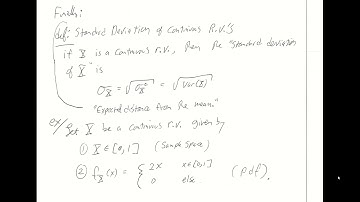 Finally:
def: Standard Deviation of Continuous R.V.'s
if X is a continuous r.v., then the "standard deviation
of X" is
σ_X = √σ_X² = √Var(X)
"Expected distance from the mean"
ex/ Let X be a continuous r.v. given by
① X ∈ [0,1] (Sample Space)
② f_X(x) = { 2x x∈[0,1] (pdf)
0 else